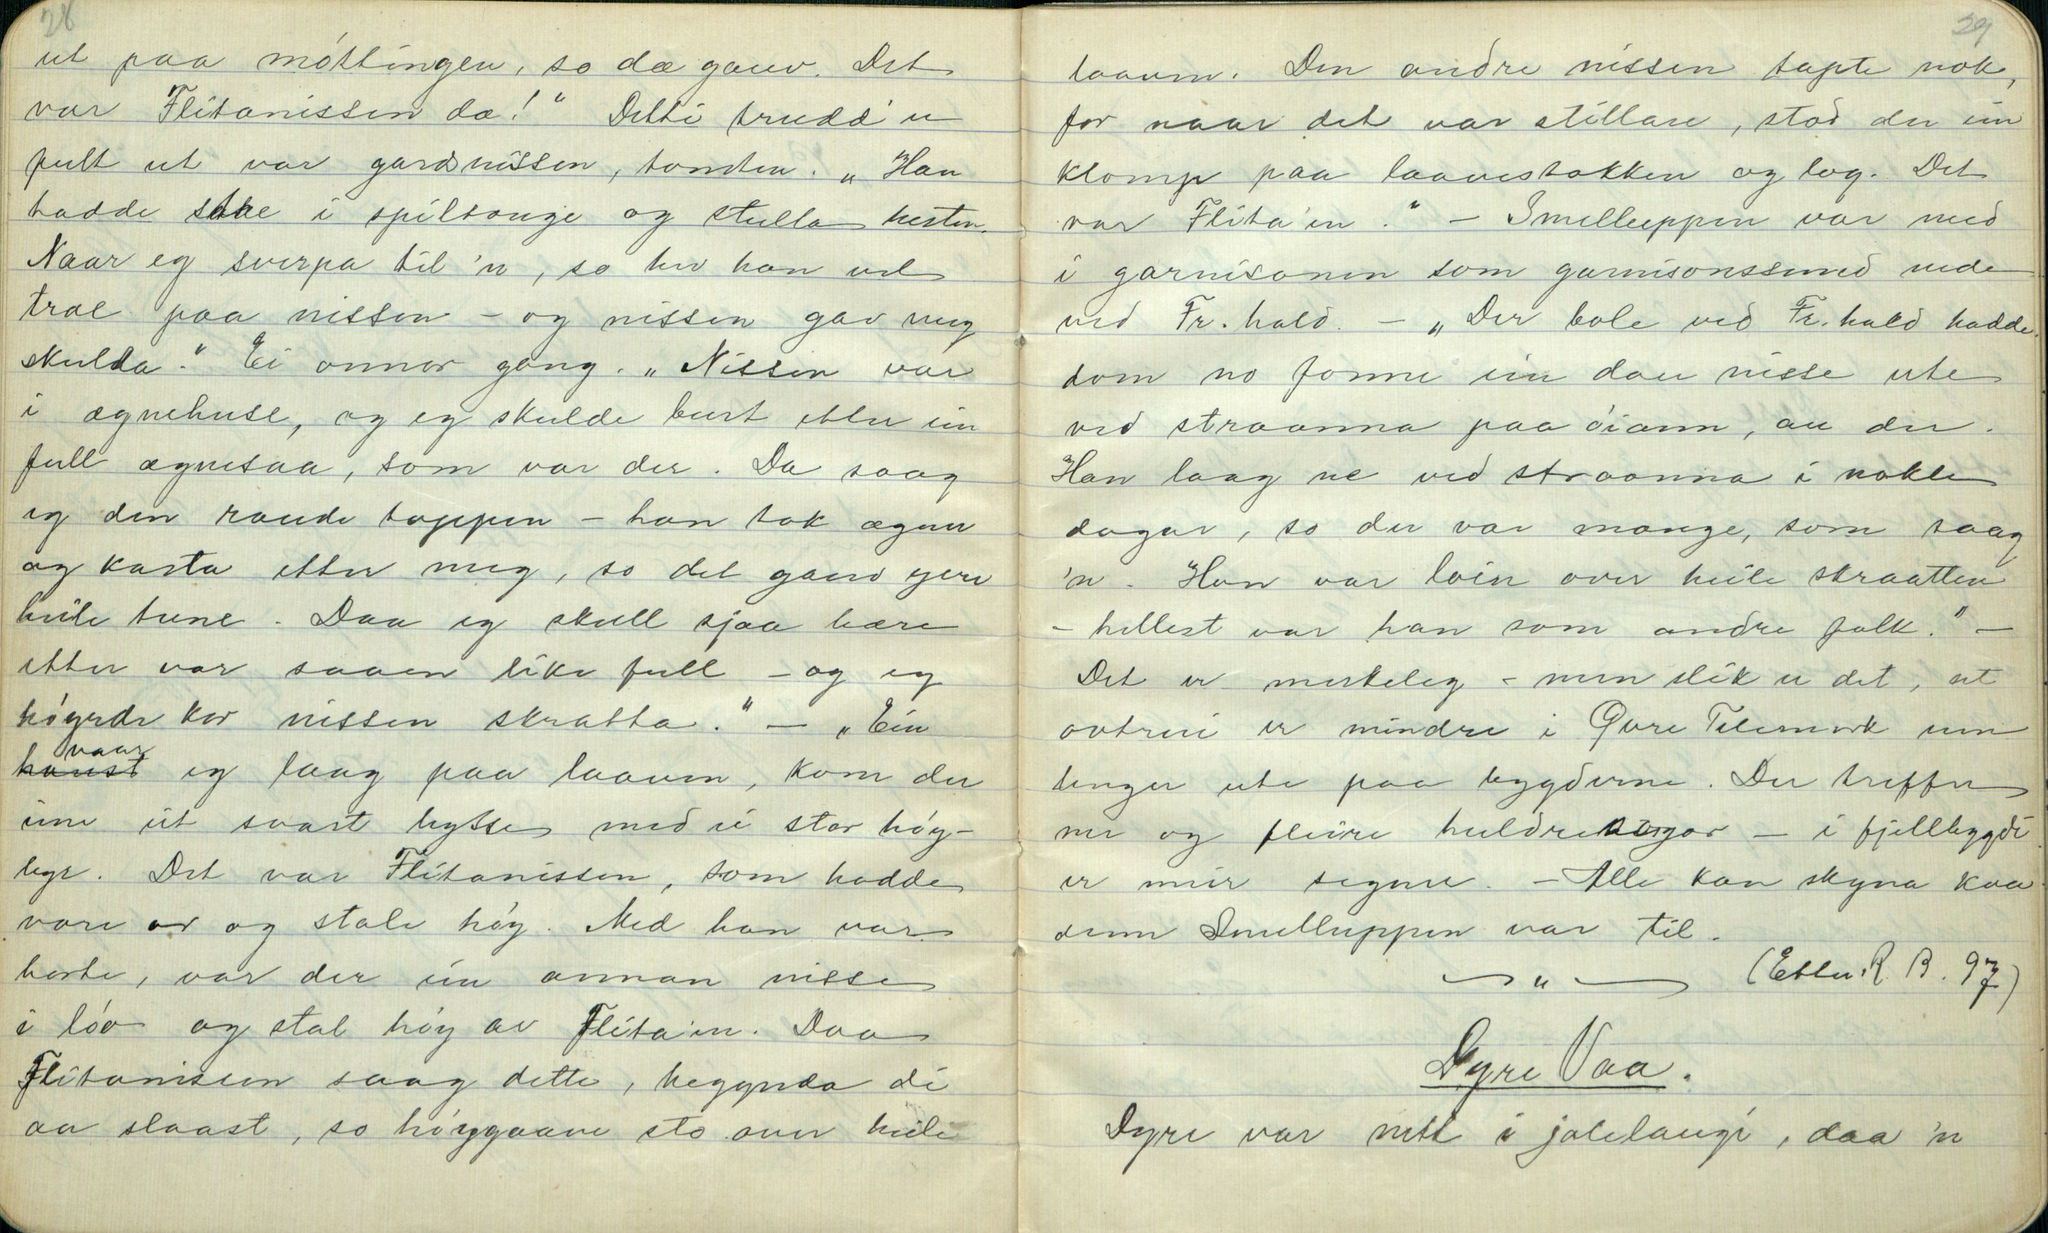 28
ut paa móttingen, so dæ gauv. Det
var Flitanissen da!" Detti trudd'u
fult ut var gardsnissen, tomten. „Han
hadde sete i spiltauge og stulla hesten.
Naar eg sverpa til 'n, so hev han vel
træl paa nissen - og nissen gav meg
skulda." Ei annor gong. „Nissen var
i ægnehuse, og eg skulde burt etter ein
full ægnesaa, som var der. Da saag
eg den raude toppen - han tok ægner
og kasta etter meg, so det gauv yver
heile tune. Daa eg skull sjaa bære
etter var saaen like full - og eg
høyrde kor nissen skratta." - „Ein
haust vaar eg laag paa laaven, kom der
inn eit svart bysse med ei stor høy-
byr. Det var Flitanissen, som hadde
vore av og stole høy. Med han var
borte, var der ein annan nisse
i lóo og stal høy av Flita'en. Daa
Flitanissen saag dette, byggnda di
aa slaast, so høyggaave sto over heile
29
laaven. Den andre nissen tapte nok,
for naar det var stillare, stod der ein
klomp paa laavestokken og log. Det
var Flita'en." - Smelluppen var med
i garnisonen som garnisonssmed nede
ved Fr. hald. - „Der bole ved Fr. hald hadde
dom no fonne ein dau nisse ute
ved straanna paa óiann, au der.
Han laag ne ved straanna i nokle
dagar, so der var mange, som saag
'n. Han var loin over heile skraatten
- hellest var han som andre folk." -
Det er merkeleg - men slik er det, at
ovtrui er mindre i Øvre Telemark enn
lenger ute paa bygderne. Der treffer
me og fleire huldresogor - i fjellbygdi
er meir segner. - Alle kan skyna kva
denn Smelluppen var til.
— „ — (Etter R. B. 97)
Dyre Vaa.
Dyre var nett i jolelaugi, daa 'n